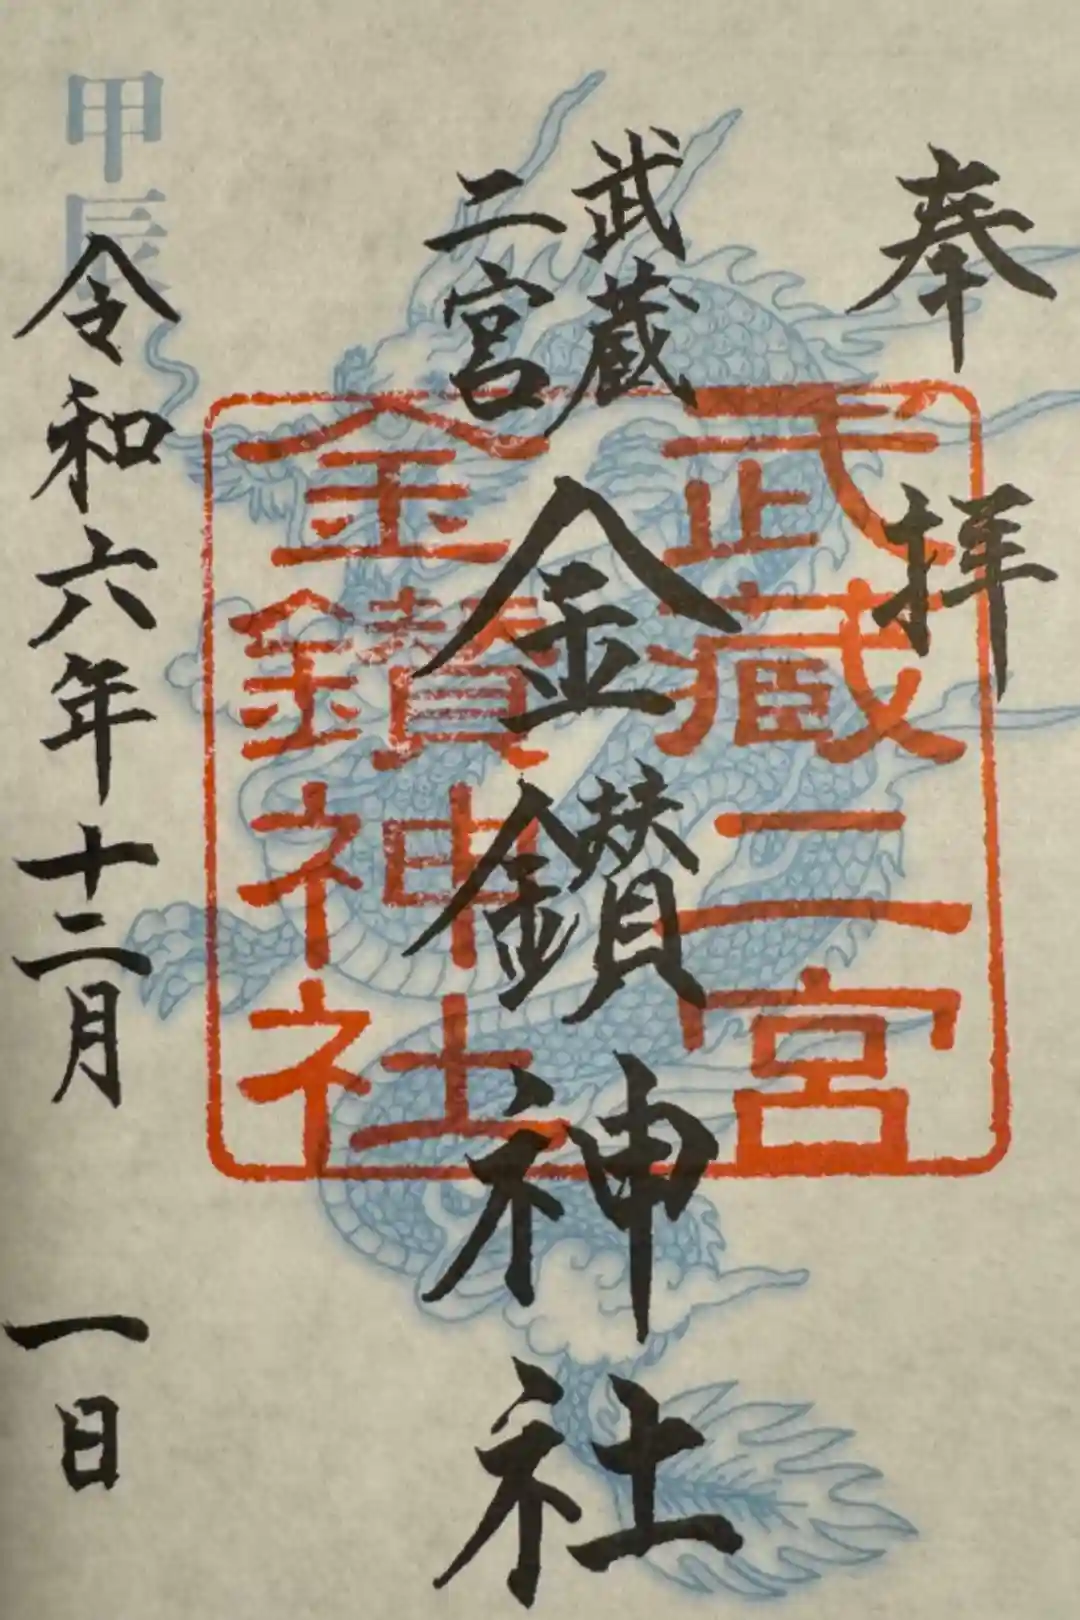 奉拝
武蔵
二宮
金鑚神社
武蔵二宮
金鑚神社
甲辰
令和六年十二月一日